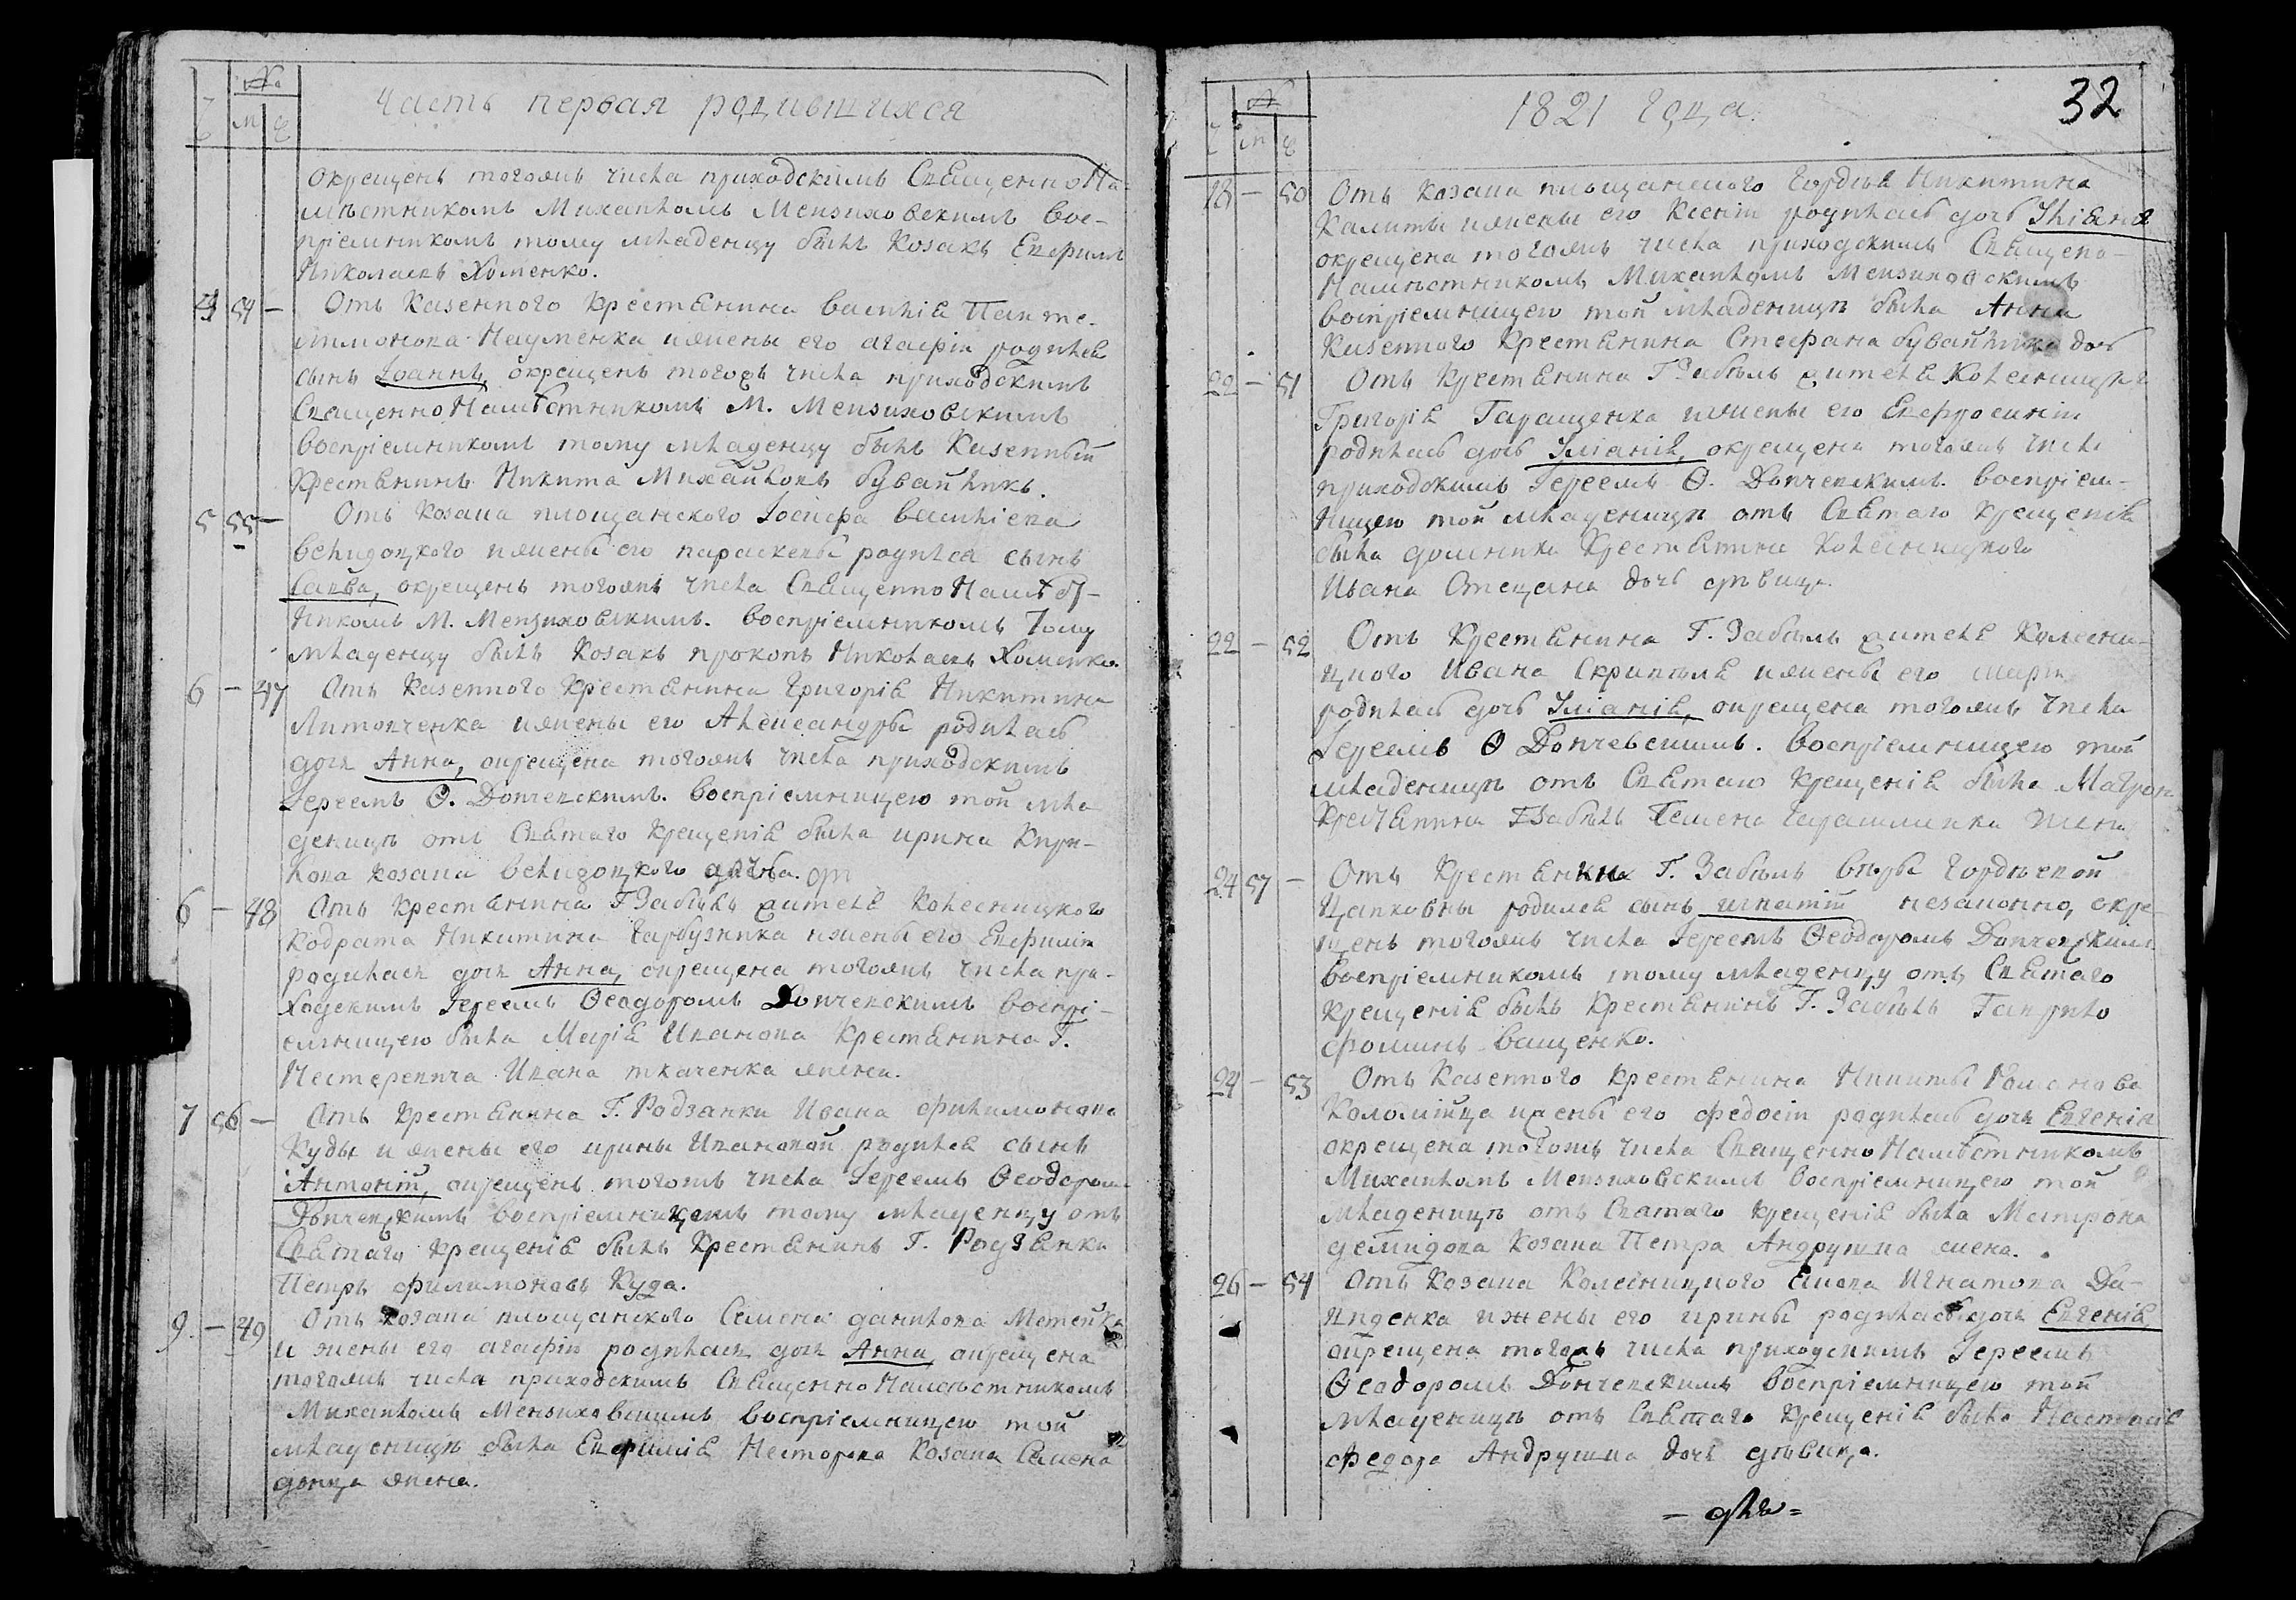 №
м
Часть первая родившихся
окрещенъ тогожъ числа приходскимъ СвященноНа-
мѣстникомъ Михаиломъ Мензиховскимъ вос-
пріемникомъ тому младенцу былъ Козакъ Евфимъ
Николаевъ Хоменко.
54 — Отъ Казенного Крестянина василія Панте-
лимонова Науменка ижены его агафіи родился
сынъ Іоаннъ, окрещенъ тогожъ числа приходскимъ
СвященноНамѣстникомъ М. Мензиховскимъ
воспріемникомъ тому младенцу былъ Казенный
Крестянинъ Никита Михайловъ бувайликъ.
5 55 — Отъ Козака площанского Іосифа василіева
велидоцкого ижены его параскевы родился сынъ
Савва, окрещенъ тогожъ числа СвященноНамѣст-
никомъ М. Мензиховскимъ. воспріемникомъ тому
младенцу былъ Козакъ прокопъ Николаевъ Хоменко.
6 — 47 Отъ Казенного Крестянина Григорія Никитина
Литовченка ижены его Александры родилась
дочь Анна, окрещена тогожъ числа приходскимъ
Іереемъ Ѳ. Донченскимъ. воспріемницею той мла
деницѣ отъ Святаго Крещенія была ирина Кири-
лова козака велидоцкого дочь.
6 — 48 Отъ Крестянина Г Забѣлы жителя Колесницкого
Кодрата Никитина Гарбузника ижены его Евфиміи
родилась дочь Анна, окрещена тогожъ числа при-
ходскимъ Іереемъ Ѳеодоромъ Донченскимъ воспрі-
емницею была Марія Иванова Крестянина Г.
Нестеренича Ивана ткаченка жена.
7 56 — Отъ Крестянина Г. Родзянки Ивана филимонова
Куды и жены его ирины Ивановой родился сынъ
Антоній, окрещенъ тогожъ числа Іереемъ Ѳеодором
Донченскимъ воспріемникомъ тому младенцу отъ
Святаго Крещенія былъ Крестянинъ Г. Родзянки
Петръ филимоновъ Куда.
9 — 49 Отъ козака площанского Семена данилова Метейка
и жены его агафіи родилась дочь Анна, окрещена
тогожъ числа приходскимъ СвященноНамѣстникомъ
Михаиломъ Мензиховскимъ воспріемницею той
младеницѣ была Евфимія Несторова Козака Семена
донца жена.
№
м
1821 Года.
32
18 — 50 Отъ Козака площанского Гордѣя Никитина
Калиты ижены его Ксеніи родилась дочь Уліяна
окрещена тогожъ числа приходскимъ Священо-
Намѣстникомъ Михаиломъ Мензиховскимъ
воспріемницею той младеницѣ была Анна
Казенного Крестянина Стефана бувайлика дочь
22 — 51 Отъ Крестянина Г Забѣлы жителя Колесницкого
Григорія Гаращенка ижены его Евфросиніи
родилась дочь Уліанія, окрещена тогожъ числа
приходскимъ Іереемъ Ѳ. Донченскимъ. воспріем-
ницею той младеницѣ отъ Святаго Крещенія
была домникія Крестянина Колесницкого
Ивана Стецана дочь дѣвица.
22 — 52 Отъ Крестянина Г. Забѣлы жителя Колесни-
цкого Ивана Скрипника ижены его Маріи
родилась дочь Уліанія, окрещена тогожъ числа
Іереемъ Ѳ Донченскимъ. воспріемницею той
младеницѣ отъ Святаго Крещенія была Матрон
Крестянина Г Забѣлы Семена жена
24 57 — Отъ Крестянки Г. Забѣлы вдовы Гордѣевой
Цапковны родился сынъ игнатій незаконно, окре-
щенъ тогожъ числа Іереемъ Ѳеодоромъ Донченскимъ
воспріемникомъ тому младенцу отъ Святаго
Крещенія былъ Крестянинъ Г. Забѣлы Гаврило
фоминъ ващенко.
24 — 53 Отъ Казенного Крестянина Никиты Романова
Коломійца ижены его федосіи родилась дочь Евгенія
окрещена тогожъ числа СвященноНамѣстникомъ
Михаиломъ Мензиховскимъ воспріемницею той
младеницѣ отъ Святаго Крещенія была Матрона
демидова Козака Петра Андрушка жена.
26 — 54 Отъ Козака Колесницкого Емена Игнатова Да-
ниденка ижены его ирины родилась дочь Евгенія
окрещена тогожъ числа приходскимъ Іереемъ
Ѳеодоромъ Донченскимъ воспріемницею той
младеницѣ отъ Святаго Крещенія была Настасія
федора Андрушка дочь дѣвица.